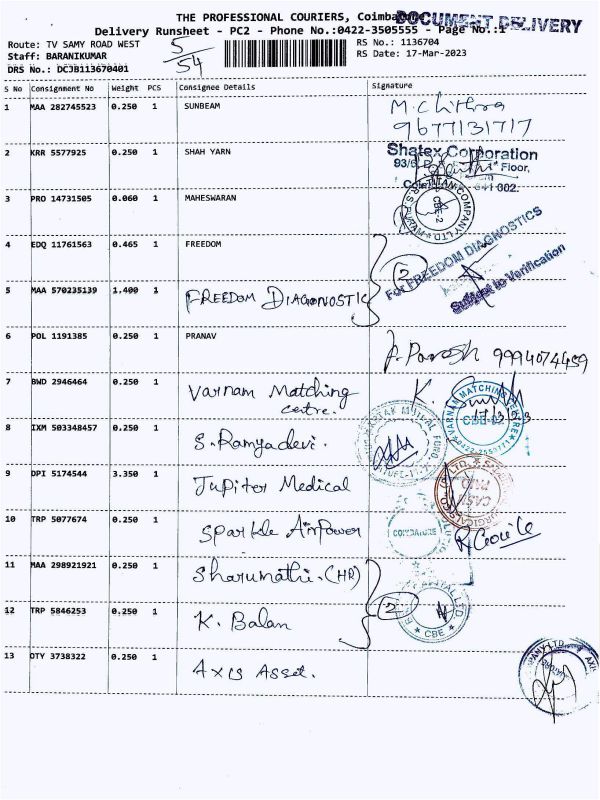 THE PROFESSIONAL COURIERS, Coimbatore
DOCUMENT DELIVERY
Delivery Runsheet - PC2 - Phone No.:0422-3505555 - Page No.:1
Route: TV SAMY ROAD WEST
5/54
RS No.: 1136704
Staff: BARANIKUMAR
RS Date: 17-Mar-2023
DRS No.: DCJB113670401
S No Consignment No Weight PCS Consignee Details Signature
1 MAA 282745523 0.250 1 SUNBEAM
M. Chithra
9677131717
2 KRR 5577925 0.250 1 SHAH YARN
Shatex Corporation
93/6 Floor,
641 002.
3 PRO 14731505 0.060 1 MAHESWARAN
TITAN COMPANY LTD
R.S. PURAM
CBE-2
4 EDQ 11761563 0.465 1 FREEDOM
2
For FREEDOM DIAGNOSTICS
Subject to Verification
5 MAA 570235139 1.400 1 FREEDOM DIAGNOSTIC
6 POL 1191385 0.250 1 PRANAV
9994074459
7 BWD 2946464 0.250 1 Varnam Matching
centre.
VARNAM MATCHING CENTRE
8 IXM 503348457 0.250 1 S. Ramyadevi.
9 DPI 5174544 3.350 1 Jupiter Medical
10 TRP 5077674 0.250 1 Sparkle Airpower
COIMBATORE
11 MAA 298921921 0.250 1 Sharumathi. (HR)
12 TRP 5846253 0.250 1 K. Balan
2
CBE
13 OTY 3738322 0.250 1 Axis Asset.